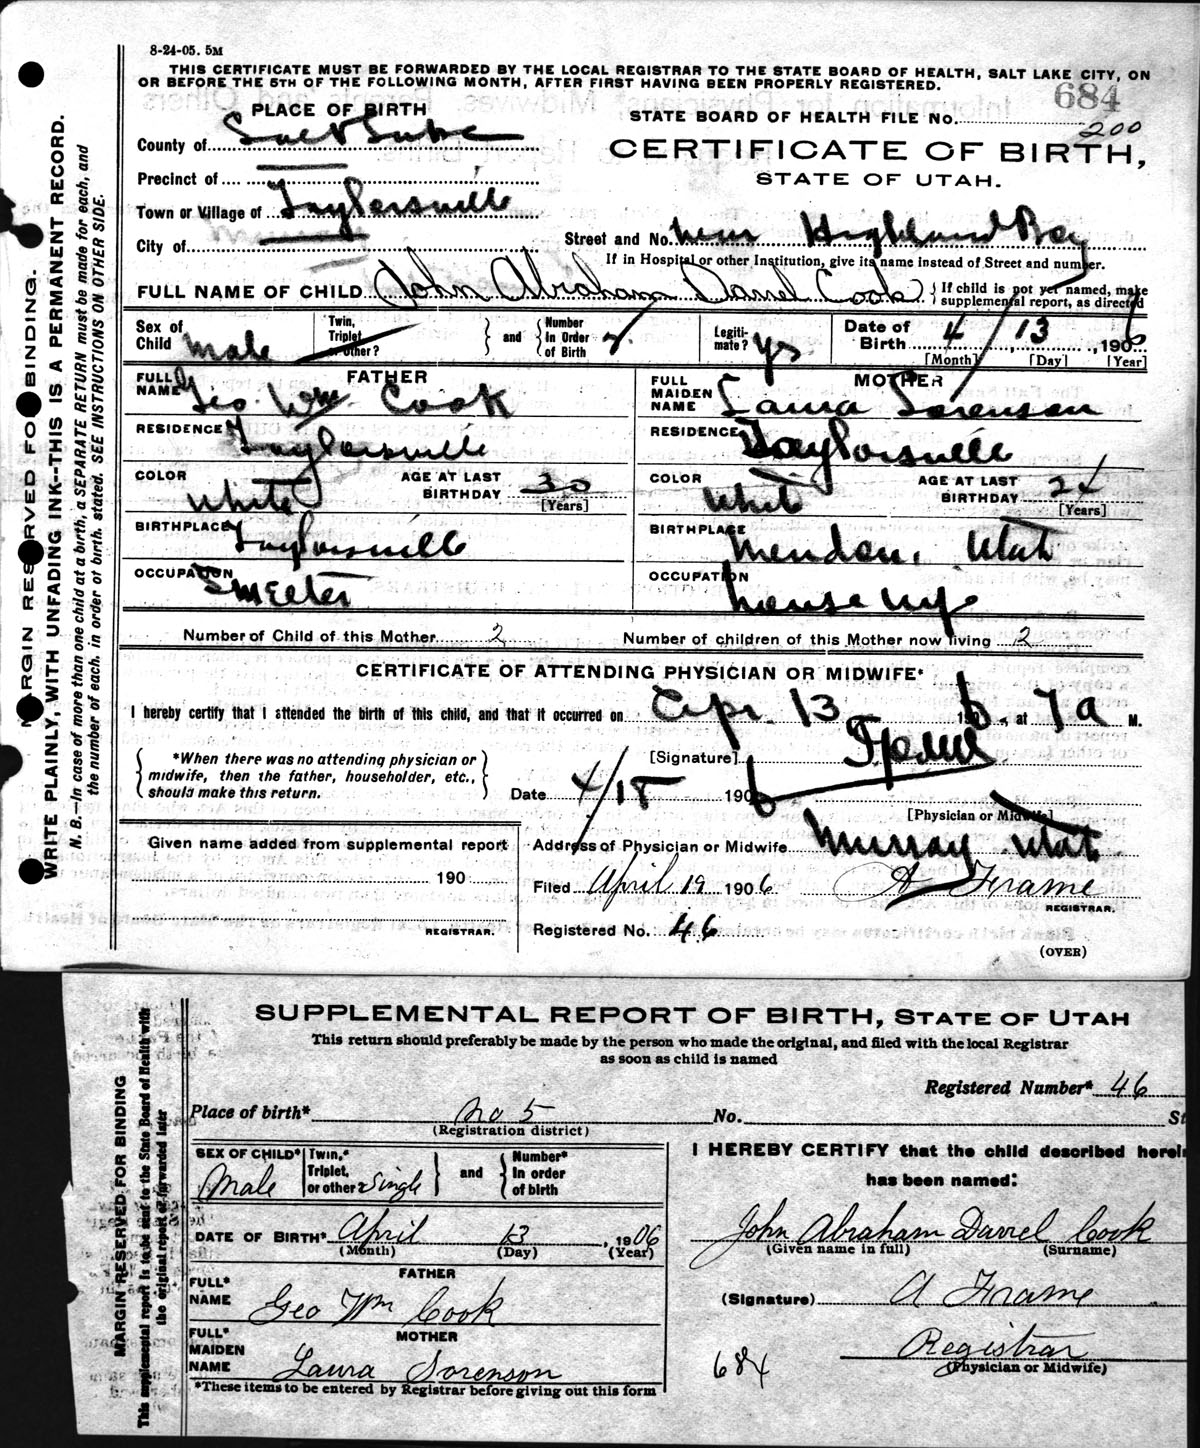 8-24-05. 5M
THIS CERTIFICATE MUST BE FORWARDED BY THE LOCAL REGISTRAR TO THE STATE BOARD OF HEALTH, SALT LAKE CITY, ON
OR BEFORE THE 5TH OF THE FOLLOWING MONTH, AFTER FIRST HAVING BEEN PROPERLY REGISTERED.
684
PLACE OF BIRTH
STATE BOARD OF HEALTH FILE No.
200
County of Salt Lake
CERTIFICATE OF BIRTH,
STATE OF UTAH.
Precinct of
Town or Village of Taylorsville
City of
Street and No. near Highland Boy
If in Hospital or other Institution, give its name instead of Street and number.
FULL NAME OF CHILD John Abraham Darrel Cook { If child is not yet named, make
supplemental report, as directed
Sex of Child Male
Twin, Triplet or other?
and
Number In Order of Birth 2
Legiti-mate? yes
Date of Birth 4 / 13, 1906
[Month] [Day] [Year]
FATHER
FULL NAME Geo. Wm. Cook
RESIDENCE Taylorsville
COLOR White
AGE AT LAST BIRTHDAY 30 [Years]
BIRTHPLACE Taylorsville
OCCUPATION Smelter
MOTHER
FULL MAIDEN NAME Laura Sorenson
RESIDENCE Taylorsville
COLOR White
AGE AT LAST BIRTHDAY 24 [Years]
BIRTHPLACE Mendon, Utah
OCCUPATION house wife
Number of Child of this Mother 2
Number of children of this Mother now living 2
CERTIFICATE OF ATTENDING PHYSICIAN OR MIDWIFE*
I hereby certify that I attended the birth of this child, and that it occurred on Apr. 13 1906, at 7 a M.
*When there was no attending physician or
midwife, then the father, householder, etc.,
should make this return.
[Signature]
Date 4/18 1906
[Physician or Midwife]
Given name added from supplemental report
190
REGISTRAR.
Address of Physician or Midwife Murray Utah
Filed April 19 1906 A Frame
REGISTRAR.
Registered No. 46
(OVER)
MARGIN RESERVED FOR BINDING.
WRITE PLAINLY, WITH UNFADING INK--THIS IS A PERMANENT RECORD.
N. B.—In case of more than one child at a birth, a SEPARATE RETURN must be made for each, and
the number of each, in order of birth, stated. SEE INSTRUCTIONS ON OTHER SIDE.
SUPPLEMENTAL REPORT OF BIRTH, STATE OF UTAH
This return should preferably be made by the person who made the original, and filed with the local Registrar
as soon as child is named
Registered Number* 46
Place of birth* No 5 No. St
(Registration district)
SEX OF CHILD* Male
Twin,* Triplet, or other? Single
and
Number* In order of birth
DATE OF BIRTH* April 13, 1906
(Month) (Day) (Year)
FATHER
FULL* NAME Geo Wm Cook
MOTHER
FULL* MAIDEN NAME Laura Sorenson
*These items to be entered by Registrar before giving out this form
I HEREBY CERTIFY that the child described herein
has been named:
John Abraham Darrel Cook
(Given name in full) (Surname)
(Signature) A Frame
Registrar
(Physician or Midwife)
684
MARGIN RESERVED FOR BINDING
This supplemental report is to be sent to the State Board of Health with
the original report or forwarded later